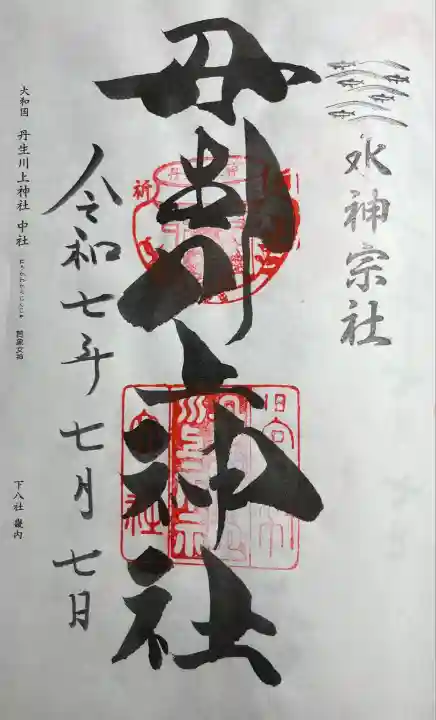 水神宗社
丹生川上神社
令和七年七月七日
大和国 丹生川上神社 中社
下八社 畿内